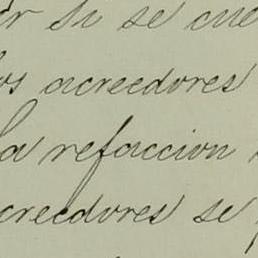 si se
acreedores
la refaccion
acreedores se